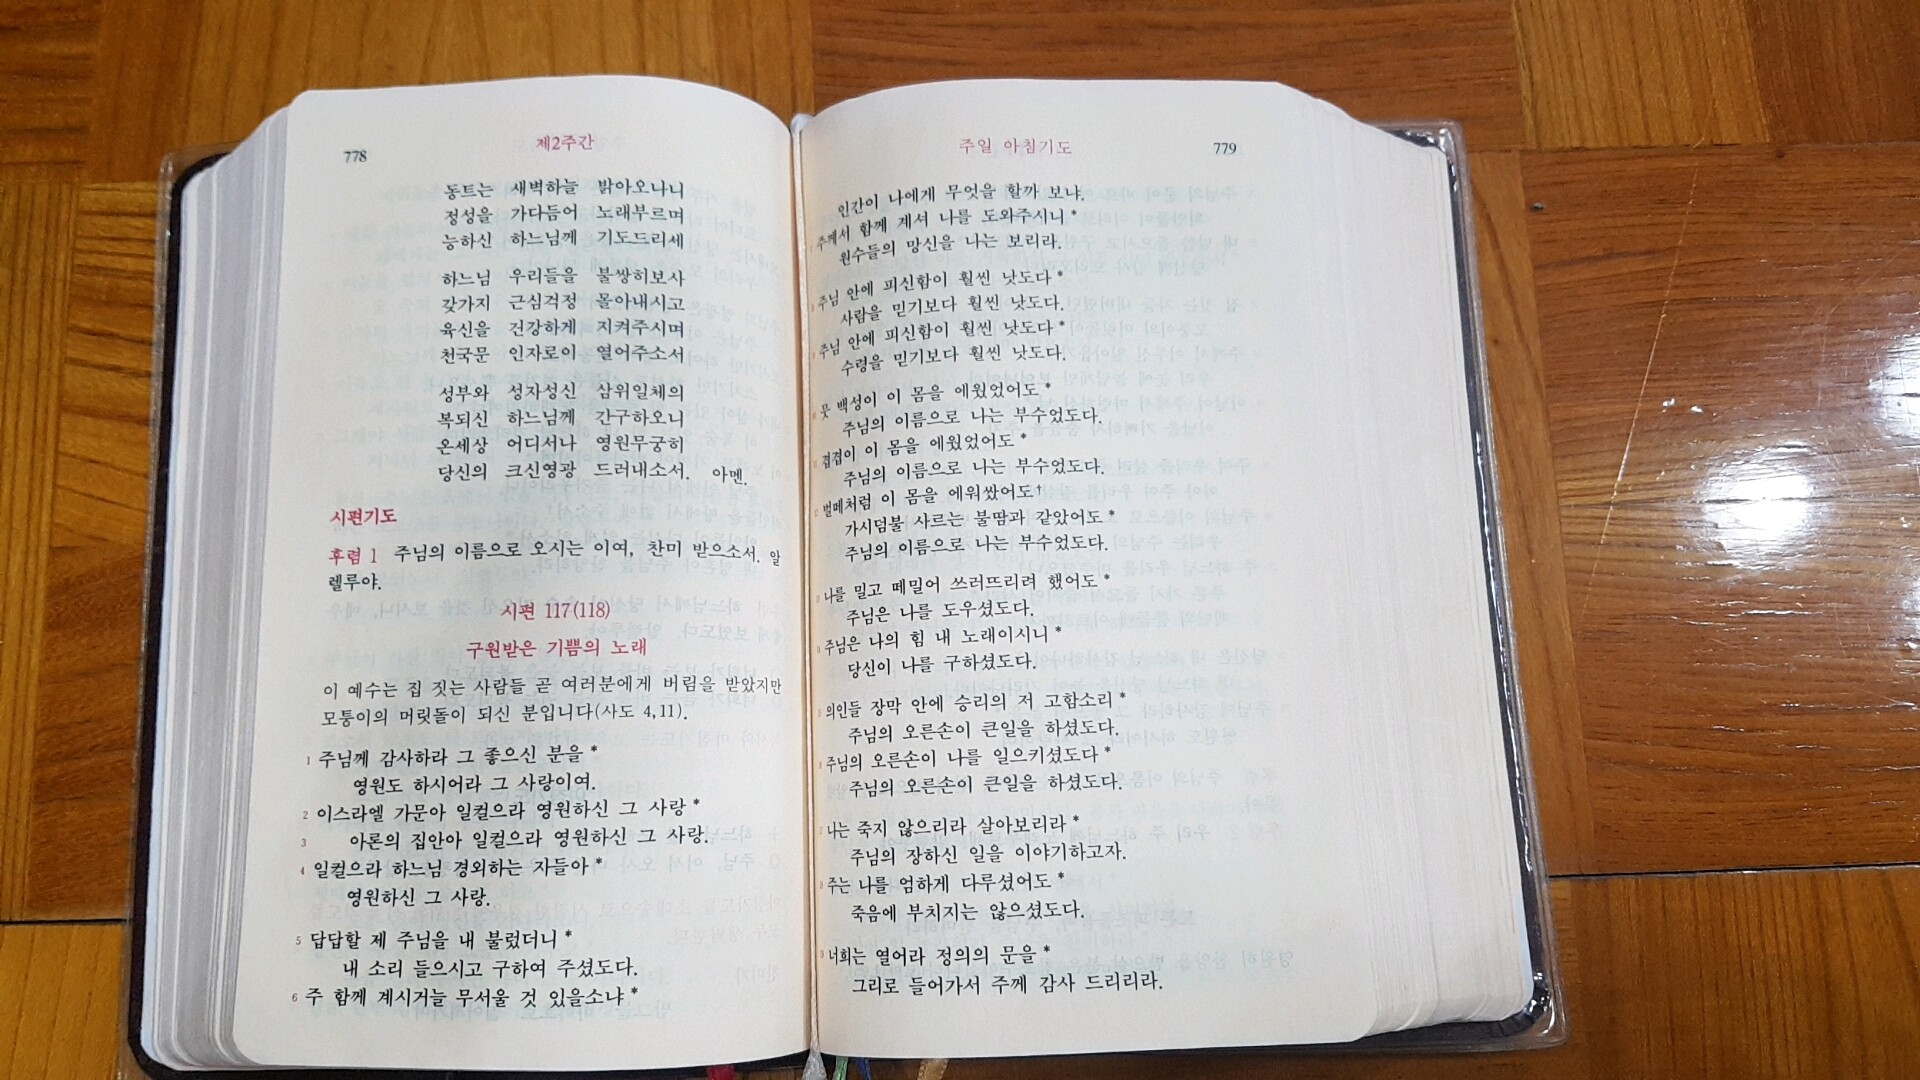 778
제2주간
동트는 새벽하늘 밝아오나니
정성을 가다듬어 노래부르며
능하신 하느님께 기도드리세
하느님 우리들을 불쌍히보사
갖가지 근심걱정 몰아내시고
육신을 건강하게 지켜주시며
천국문 인자로이 열어주소서
성부와 성자성신 삼위일체의
복되신 하느님께 간구하오니
온세상 어디서나 영원무궁히
당신의 크신영광 드러내소서. 아멘.
시편기도
후렴 1 주님의 이름으로 오시는 이여, 찬미 받으소서. 알
렐루야.
시편 117(118)
구원받은 기쁨의 노래
이 예수는 집 짓는 사람들 곧 여러분에게 버림을 받았지만
모퉁이의 머릿돌이 되신 분입니다(사도 4,11).
1 주님께 감사하라 그 좋으신 분을*
영원도 하시어라 그 사랑이여.
2 이스라엘 가문아 일컬으라 영원하신 그 사랑*
3 아론의 집안아 일컬으라 영원하신 그 사랑.
4 일컬으라 하느님 경외하는 자들아*
영원하신 그 사랑.
5 답답할 제 주님을 내 불렀더니*
내 소리 들으시고 구하여 주셨도다.
6 주 함께 계시거늘 무서울 것 있을소냐*
주일 아침기도
779
인간이 나에게 무엇을 할까 보냐.
주께서 함께 계셔 나를 도와주시니*
원수들의 망신을 나는 보리라.
주님 안에 피신함이 훨씬 낫도다*
사람을 믿기보다 훨씬 낫도다.
주님 안에 피신함이 훨씬 낫도다*
수령을 믿기보다 훨씬 낫도다.
뭇 백성이 이 몸을 에웠었어도*
주님의 이름으로 나는 부수었도다.
겹겹이 이 몸을 에웠었어도*
주님의 이름으로 나는 부수었도다.
벌떼처럼 이 몸을 에워쌌어도†
가시덤불 사르는 불땀과 같았어도*
주님의 이름으로 나는 부수었도다.
나를 밀고 떼밀어 쓰러뜨리려 했어도*
주님은 나를 도우셨도다.
주님은 나의 힘 내 노래이시니*
당신이 나를 구하셨도다.
의인들 장막 안에 승리의 저 고함소리*
주님의 오른손이 큰일을 하셨도다.
주님의 오른손이 나를 일으키셨도다*
주님의 오른손이 큰일을 하셨도다.
나는 죽지 않으리라 살아보리라*
주님의 장하신 일을 이야기하고자.
주는 나를 엄하게 다루셨어도*
죽음에 부치지는 않으셨도다.
너희는 열어라 정의의 문을*
그리로 들어가서 주께 감사 드리리라.